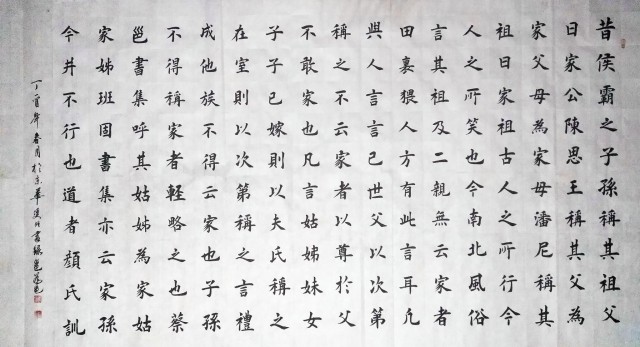 昔侯霸之子孫稱其祖父
曰家公陳思王稱其父為
家父母為家母潘尼稱其
祖曰家祖古人之所行今
人之所笑也今南北風俗
言其祖及二親無云家者
田裏猥人方有此言耳凡
與人言言己世父以次第
稱之不云家者以尊於父
不敢家也凡言姑姊妹女
子子已嫁則以夫氏稱之
在室則以次第稱之言禮
成他族不得云家也子孫
不得稱家者輕略之也蔡
邕書集呼其姑姊為家姑
家姊班固書集亦云家孫
今并不行也道者顏氏訓
丁酉年春月於京華